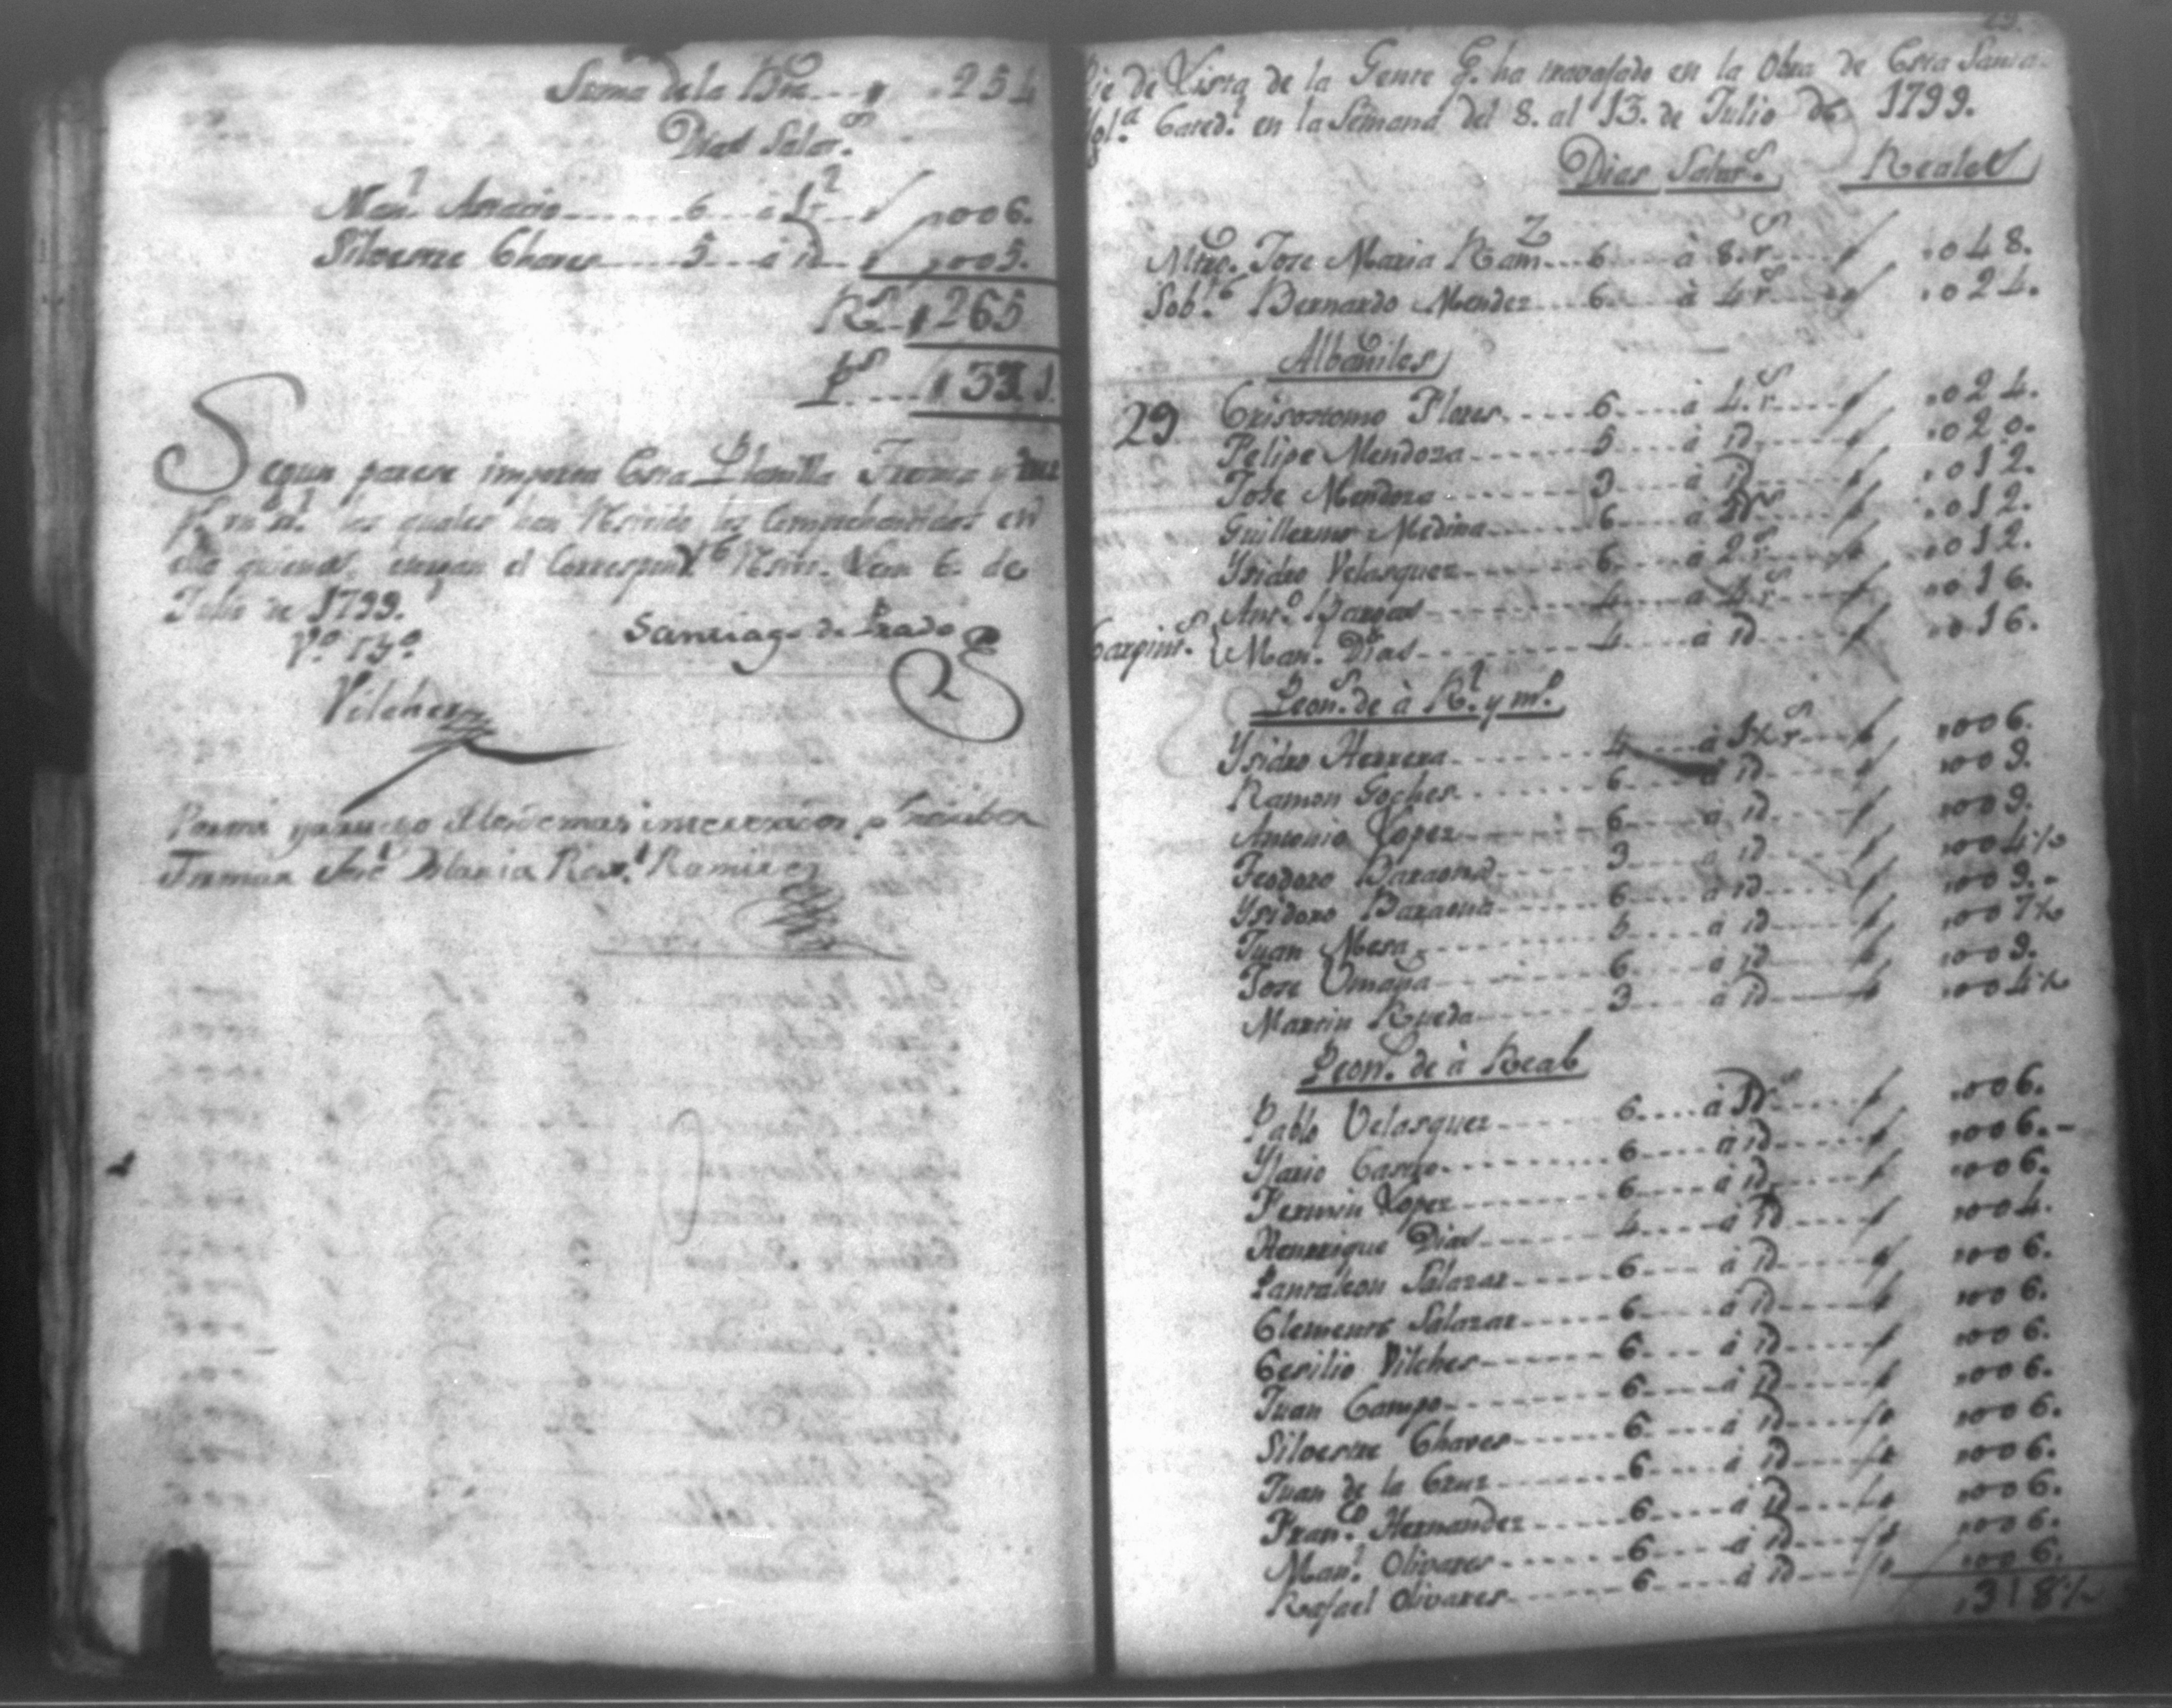 Suma de la Bta 254
Dias Salar.s
Man.l Anacio 6 à 1 r.l 006.
Silvestre Chaves 5 à id 005.
R.s 265
P.s 33.1.
Segun parese importa Esta Planilla Treinta y tres
p.s un r.l los quales han Resivido los Comprehendidos en
ella quienes, otorgan el Correspond.te Resivo. Leon 6. de
Julio de 1799.
V.o B.o Santiago de Prado
Vilches
Por mi y a ruego de los demas interesados q.e no saben
Firmar José Maria Ramirez
29.
Pie de Lista de la Gente q.e ha travajado en la Obra de Esta Santa
Ygl.a Cated.l en la Semana del 8. al 13. de Julio de 1799.
Dias Salar.s Reales
Mtro. Jose Maria Ram.z 6 à 8. r.s 048.
Sob.te Bernardo Mendez 6 à 4 r.s 024.
Albañiles
29 Crisostomo Flores 6 à 4. r.s 024.
Felipe Mendoza 5 à id 020.
Jose Mendoza 3 à id 012.
Guillermo Medina 6 à 2 r.s 012.
Ysidro Velasquez 6 à 2. r.s 012.
Ant.o Vargas 4 à 4 r.s 016.
Carpint.s Man.l Dias 4 à id 016.
Peon.s de à R.l y m.o
Ysidro Herrera 4 à 1½ r.s 006.
Ramon Goches 6 à id 009.
Antonio Lopez 6 à id 009.
Teodoro Baraona 3 à id 004½
Ysidoro Baraona 6 à id 009.
Juan Mesa 5 à id 007½
Jose Umaña 6 à id 009.
Martin Rueda 3 à id 004½
Peon.s de à Real
Pablo Velasquez 6 à 1 r.l 006.
Ylario Castro 6 à id 006.
Fermin Lopez 6 à id 006.
Henrrique Dias 4 à id 004.
Pantaleon Salazar 6 à id 006.
Clemente Salazar 6 à id 006.
Cesilio Vilches 6 à id 006.
Juan Campo 6 à id 006.
Silvestre Chaves 6 à id 006.
Juan de la Cruz 6 à id 006.
Fran.co Hernandez 6 à id 006.
Man.l Olivares 6 à id 006.
Rafael Olivares 6 à id 006.
318½